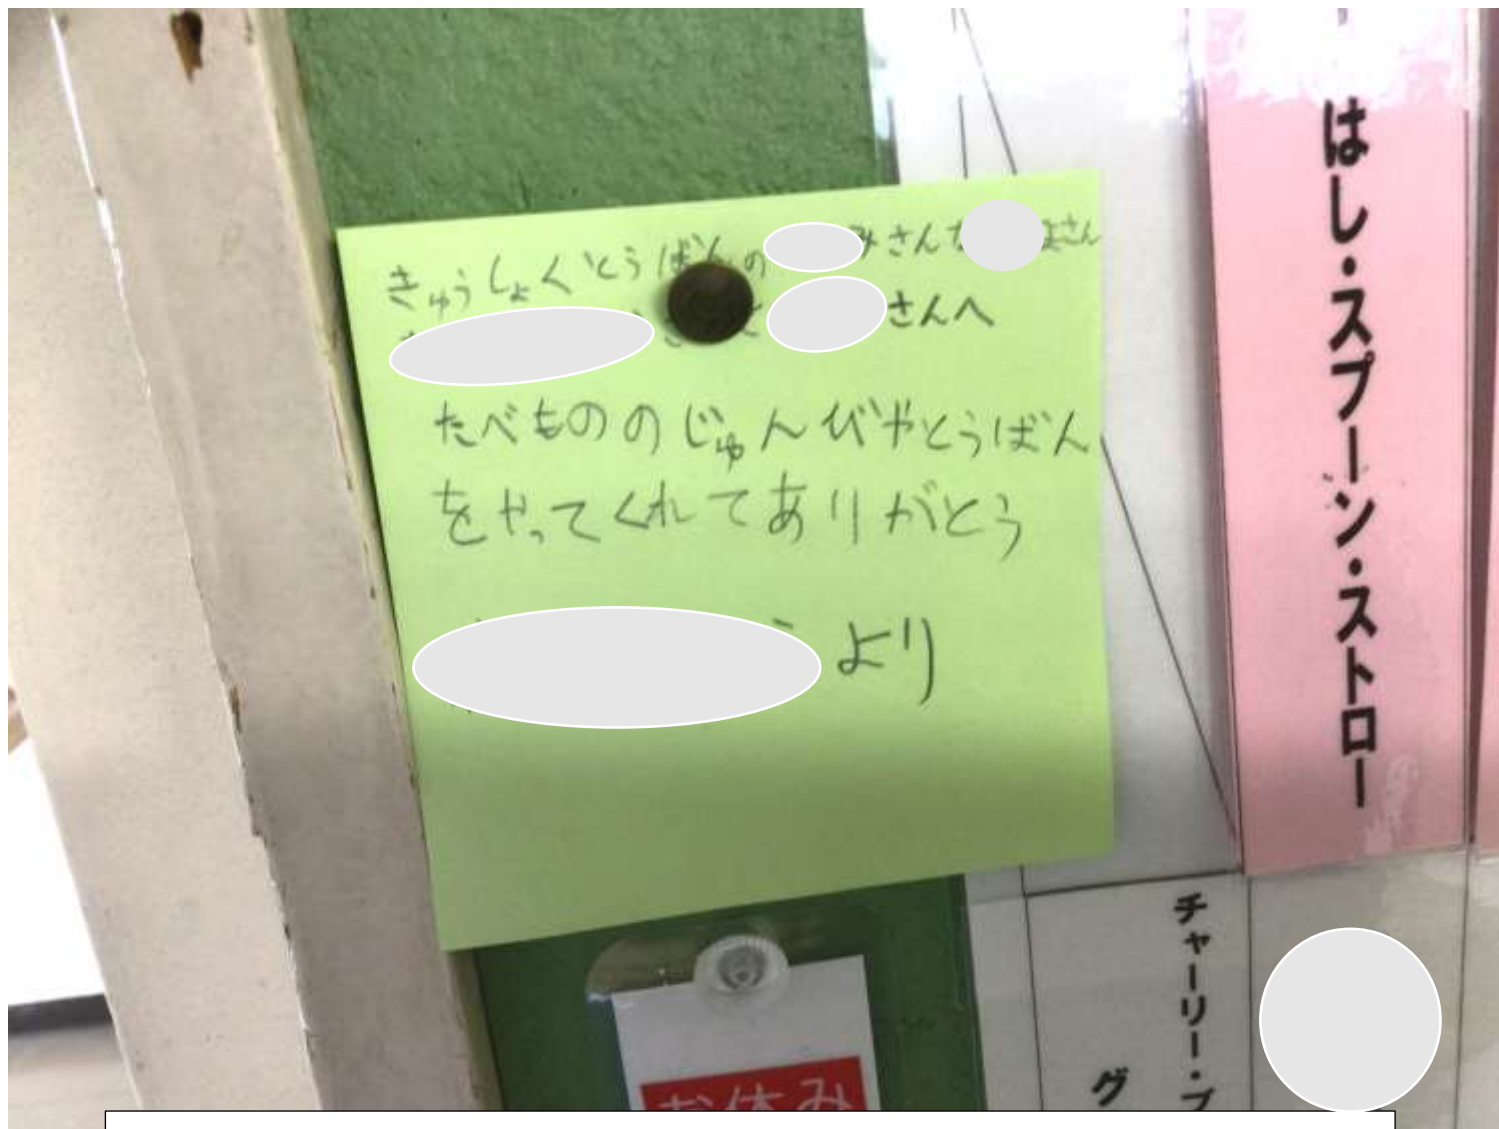 きゅうしょくとうばんの みさんた よさん
さんへ
たべもののじゅんびやとうばん
をやってくれてありがとう
より
はし・スプーン・ストロー
チャーリー・ブ
グ
お休み